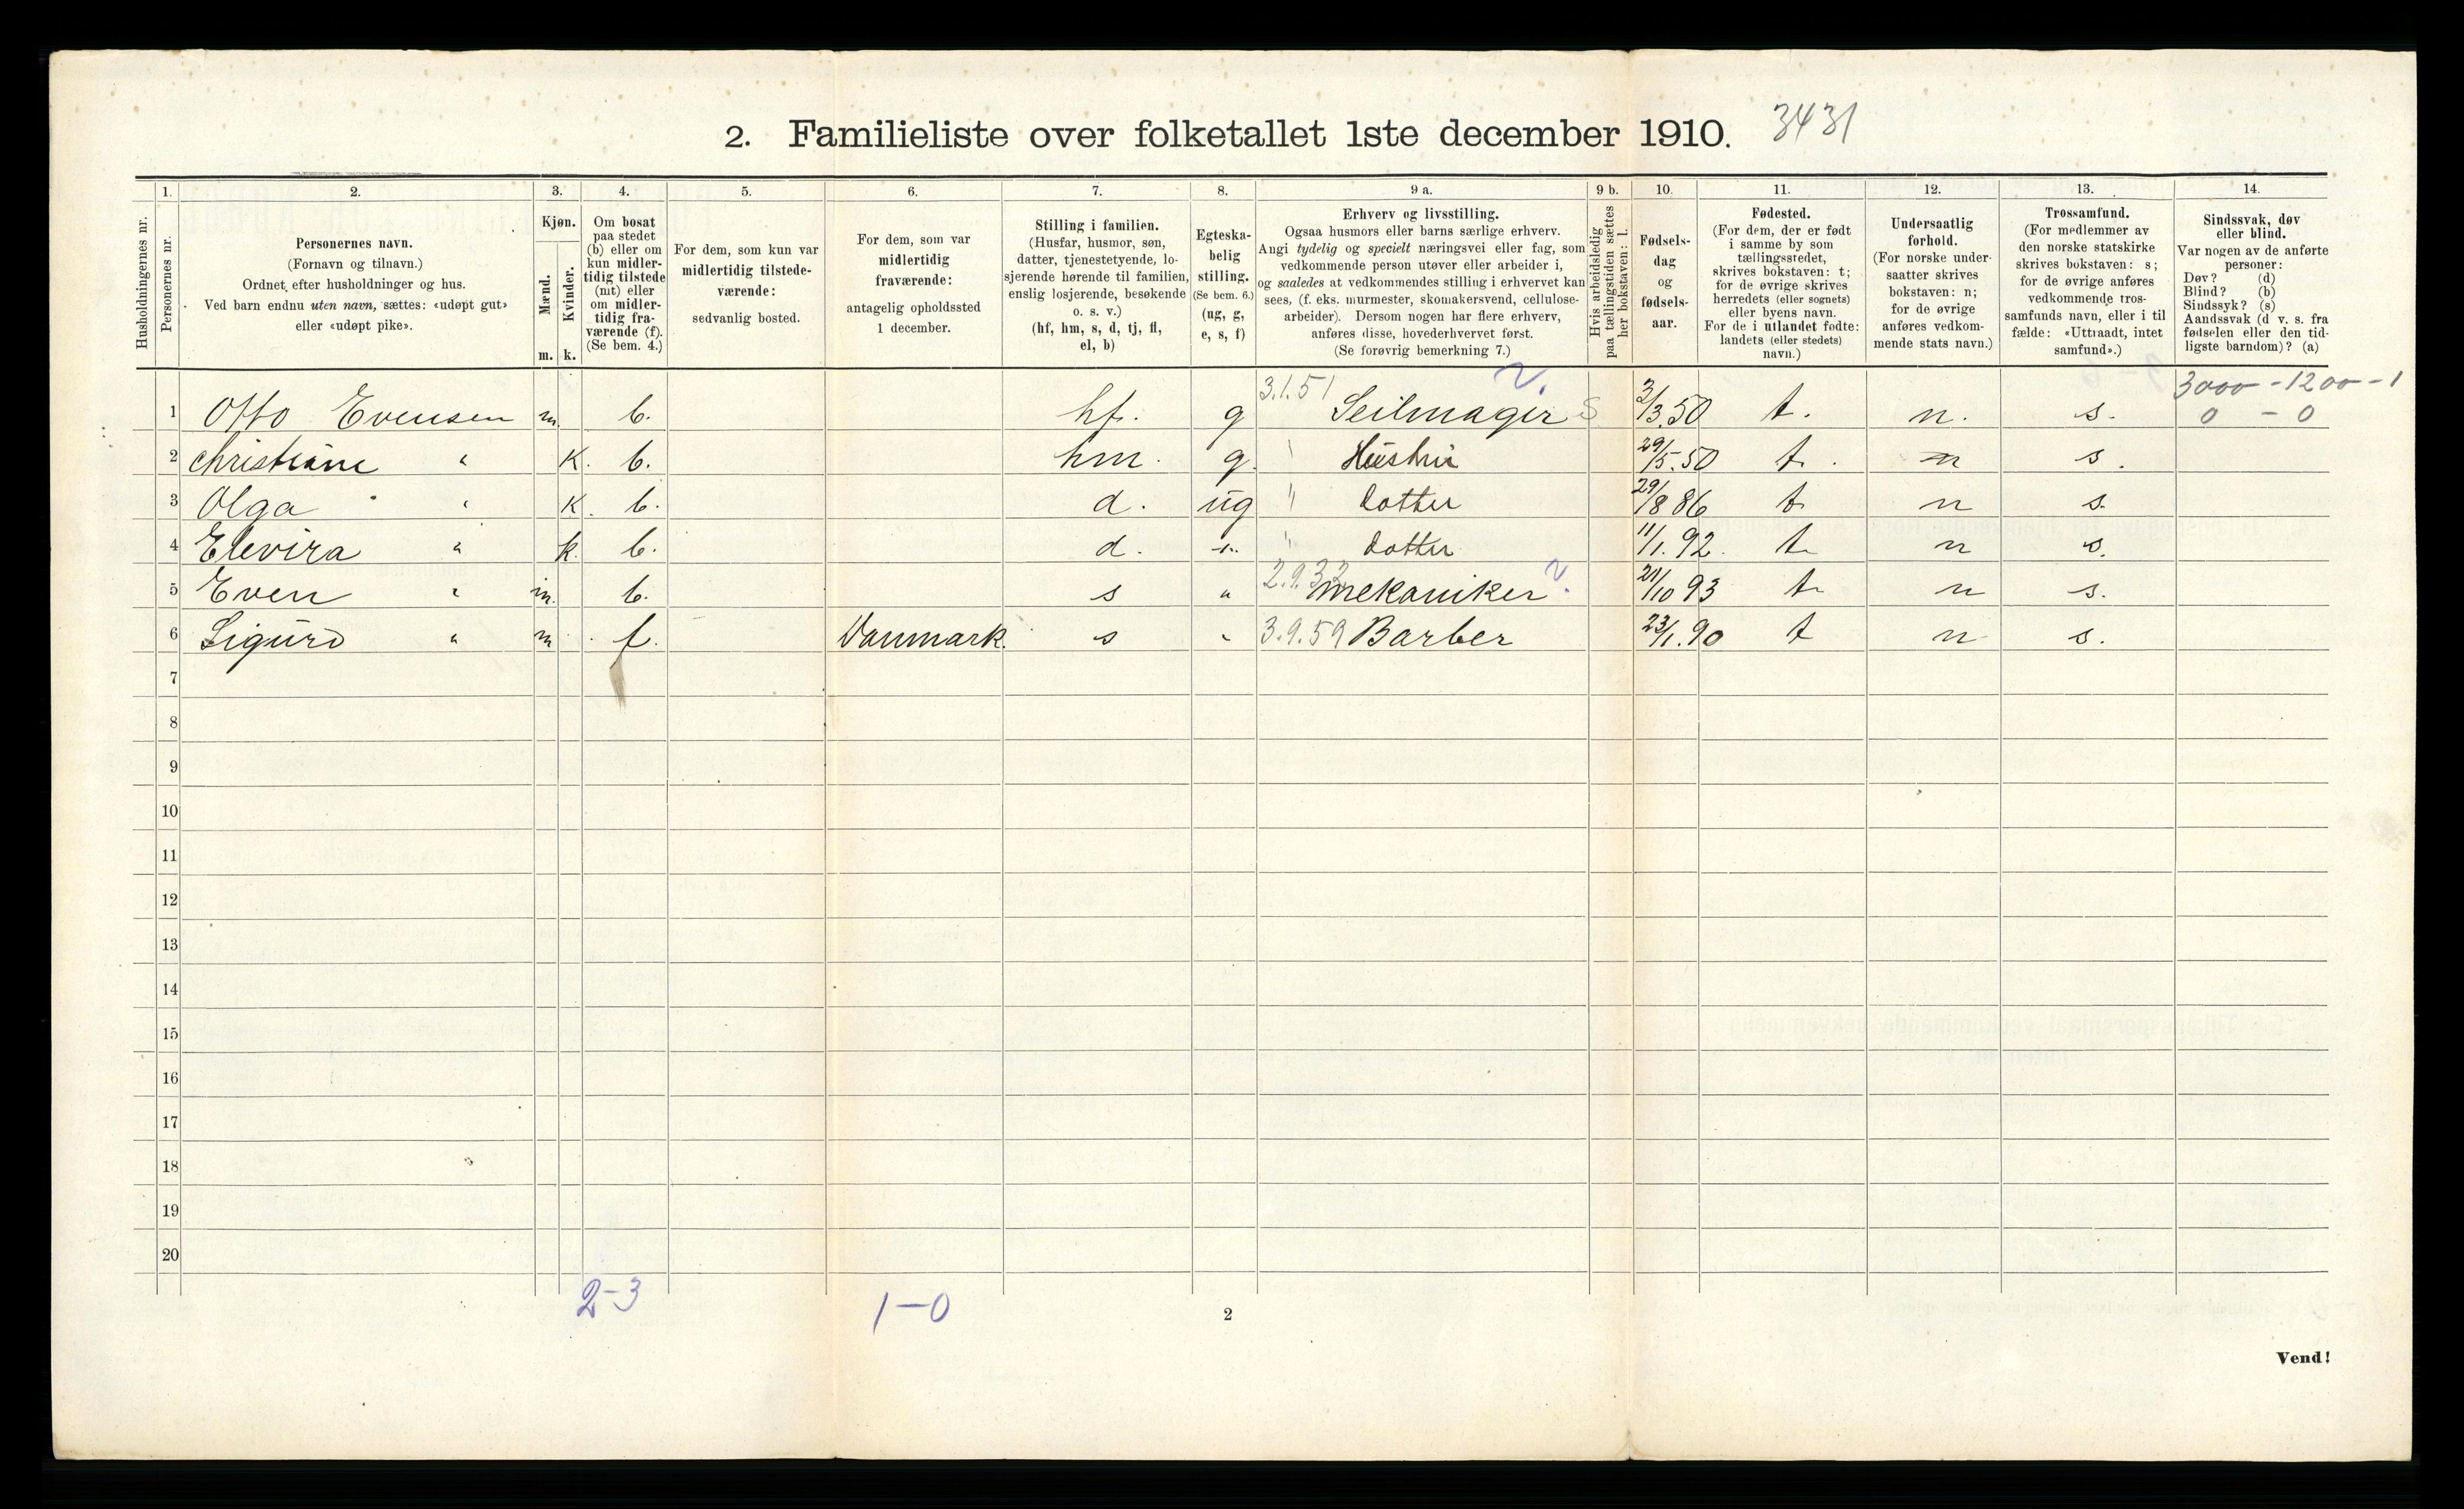 2. Familieliste over folketallet 1ste december 1910. 3431
Husholdningernes nr.
Personernes nr.
1. 2. 3. 4. 5. 6. 7. 8. 9 a. 9 b. 10. 11. 12. 13. 14.
Personernes navn.
(Fornavn og tilnavn.)
Ordnet efter husholdninger og hus.
Ved barn endnu uten navn, sættes: «udøpt gut»
eller «udøpt pike».
Kjøn.
Mænd.
Kvinder.
m. k.
Om bosat
paa stedet
(b) eller om
kun midler-
tidig tilstede
(mt) eller
om midler-
tidig fra-
værende (f).
(Se bem. 4.)
For dem, som kun var
midlertidig tilstede-
værende:
sedvanlig bosted.
For dem, som var
midlertidig
fraværende:
antagelig opholdssted
1 december.
Stilling i familien.
(Husfar, husmor, søn,
datter, tjenestetyende, lo-
sjerende hørende til familien,
enslig losjerende, besøkende
o. s. v.)
(hf, hm, s, d, tj, fl,
el, b)
Egteska-
belig
stilling.
(Se bem. 6.)
(ug, g,
e, s, f)
Erhverv og livsstilling.
Ogsaa husmors eller barns særlige erhverv.
Angi tydelig og specielt næringsvei eller fag, som
vedkommende person utøver eller arbeider i,
og saaledes at vedkommendes stilling i erhvervet kan
sees, (f. eks. murmester, skomakersvend, cellulose-
arbeider). Dersom nogen har flere erhverv,
anføres disse, hovederhvervet først.
(Se forøvrig bemerkning 7.)
Hvis arbeidsledig
paa tællingstiden sættes
her bokstaven: l.
Fødsels-
dag
og
fødsels-
aar.
Fødested.
(For dem, der er født
i samme by som
tællingsstedet,
skrives bokstaven: t;
for de øvrige skrives
herredets (eller sognets)
eller byens navn.
For de i utlandet fødte:
landets (eller stedets)
navn.)
Undersaatlig
forhold.
(For norske under-
saatter skrives
bokstaven: n;
for de øvrige
anføres vedkom-
mende stats navn.)
Trossamfund.
(For medlemmer av
den norske statskirke
skrives bokstaven: s;
for de øvrige anføres
vedkommende tros-
samfunds navn, eller i til
fælde: «Uttraadt, intet
samfund».)
Sindssvak, døv
eller blind.
Var nogen av de anførte
personer:
Døv? (d)
Blind? (b)
Sindssyk? (s)
Aandssvak (d v. s. fra
fødselen eller den tid-
ligste barndom)? (a)
3.1.51 3000 - 1200 - 1
1 Otto Evensen m. b. hf. g Seilmager S 3/3.50 t. n. s. 0 - 0
2 Christiane " K. b. hm. g. " Hustru 29/5.50 t. n s.
3 Olga " K. b. d. ug " Dotter 29/8 86 t n s.
4 Elevira " k. b. d. " " Dotter 11/1.92. t n s.
5 Even " m. b. s " 2.9.32 Mekaniker 21/10 93 t n s.
6 Sigurd " m f. Danmark. s " 3.9.59 Barber 23/1.90 t n s.
7
8
9
10
11
12
13
14
15
16
17
18
19
20
2-3 1-0 2
Vend!